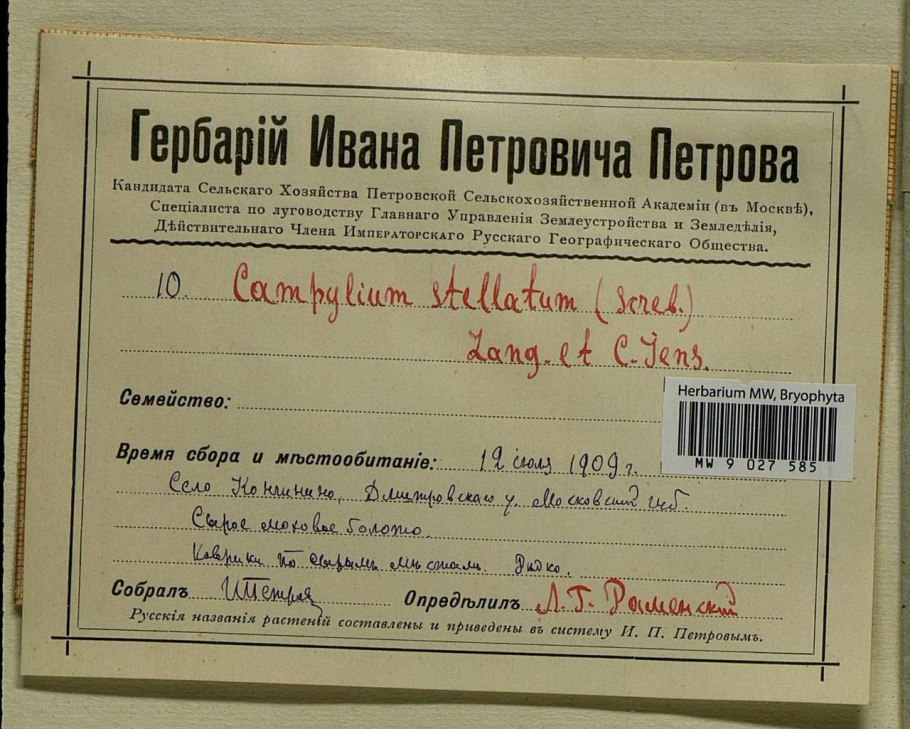 Гербарій Ивана Петровича Петрова
Кандидата Сельскаго Хозяйства Петровской Сельскохозяйственной Академіи (въ Москвѣ),
Спеціалиста по луговодству Главнаго Управленія Землеустройства и Земледѣлія,
Дѣйствительнаго Члена Императорскаго Русскаго Географическаго Общества.
10. Campylium stellatum (Screb.)
Lang. et C. Jens.
Семейство:
Herbarium MW, Bryophyta
MW 9 027 585
Время сбора и мѣстообитаніе: 12 іюля 1909 г.
Село Кончинино, Дмитровскаго у. Московской губ.
Сырое моховое болото.
Коврики по сырымъ мѣстамъ. Рѣдко.
Собралъ ИПетров Опредѣлилъ Л. Г. Раменский
Русскія названія растеній составлены и приведены въ систему И. П. Петровымъ.